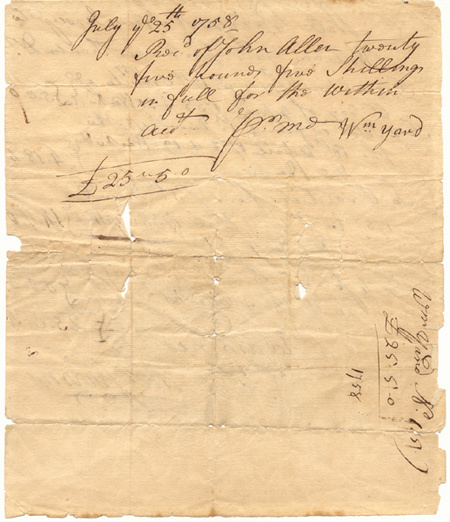 July ye 25th 1758
Recd of John Allen twenty
five pounds five Shillings
in full for the within
acct pr me Wm Yard
£25"5"0
Wm Yard
£25"5"0
1758